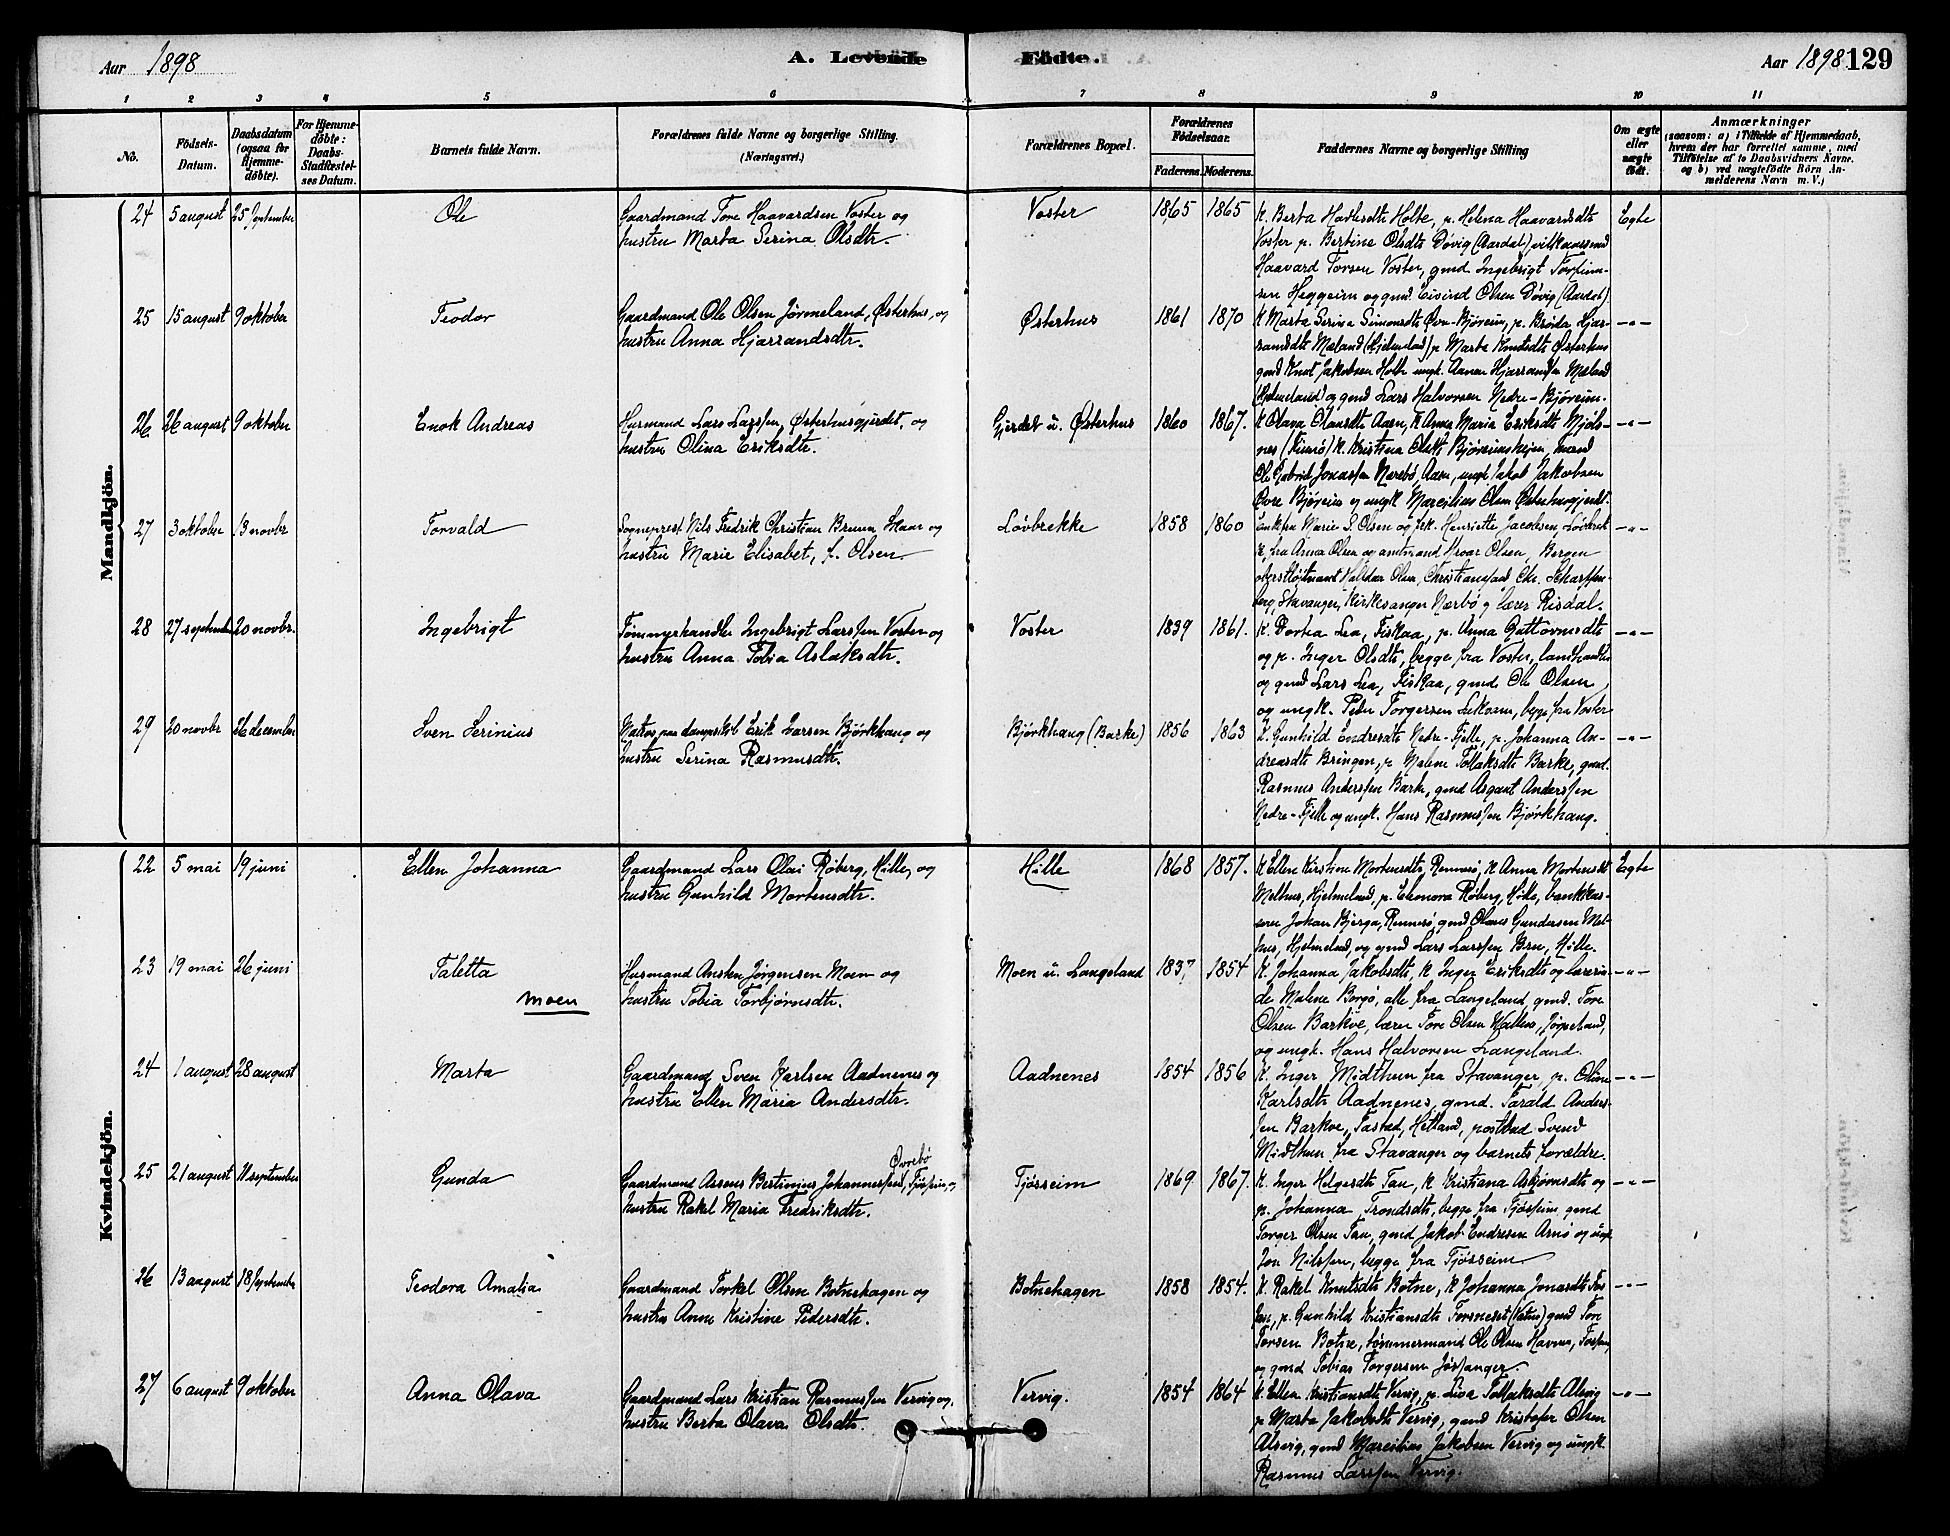 Aar 1898
A. Levende
Födte.
Aar 1898
129
1 2 3 4 5 6 7 8 9 10 11
No.
Födsels-Datum.
Daabsdatum (ogsaa for Hjemmedöbte).
For Hjemmedöbte: Daabs-Stadfæstelses Datum.
Barnets fulde Navn.
Forældrenes fulde Navne og borgerlige Stilling. (Næringsvei.)
Forældrenes Bopæl.
Forældrenes Födselsaar.
Faderens. Moderens.
Faddernes Navne og borgerlige Stilling
Om ægte eller uægte födt.
Anmærkninger
(saasom: a) i Tilfælde af Hjemmedaab, hvem der har forrettet samme, med Tilföielse af to Daabsvidners Navne. og b) ved uægtefödte Börn Anmelderens Navn m. V.)
Mandkjön.
24 5 august 25 September Ole
Gaardmand Tore Haavardsen Voster og
hustru Marta Serina Olsdtr.
Voster 1865 1865
K. Berta Hadlesdtr Holte, p. Helena Haavardsdtr
Voster p. Bertine Olsdtr Døvig (Aardal) vilkaarsmand
Haavard Torsen Voster, gmd. Ingebrigt Torfinn-
sen Heggeim og gmd. Eivind Olsen Døvig (Aardal)
Egte
25 15 august 9 oktober Teodor
Gaardmand Ole Olsen Jørmeland, Østerhus, og
hustru Anna Hjarrandsdtr.
Østerhus 1861 1870
K Marta Serina Simonsdtr Øvre-Bjøreim, p. Brøda Hjar-
randsdtr Mæland (Hjelmeland) p Marta Knutsdtr Østerhus
gmd Knut Jakobsen Holte ungk. Aanen Hjarrandsen Mæland
(Hjelmeland) og gmd Lars Halvorsen Nedre-Bjøreim.
-"-
26 26 august 9 oktober Enok Andreas
Husmand Lars Larssen, Østerhusgjerdet, og
hustru Olina Eriksdtr.
Gjerdet u. Østerhus 1860 1867.
K Olava Olausdtr Aasen, K Anna Maria Eriksdtr Mjøls-
nes (Finnø) K. Kristina Olsdtr Bjøreimskeien, mand
Ole Gabriel Jonassen Nærebø, Aasen, ungk Jakob Jakobsen
Øvre Bjøreim og ungk Marcilius Olsen Østerhusgjerdet.
-"-
27 3 oktober 13 novbr Torvald
Sogneprest Nils Fredrik Christian Bruun Skaar og
hustru Marie Elisabet, f. Olsen
Løvbrekke 1858 1860
Enkefru Marie S. Olsen og frk. Henriette Jacobsen, Løvbrek
K, fru Anna Olsen og amtmand Hroar Olsen, Bergen
oberstløitnant Halfdan Olsen, Christianssand Chr. Scharffen-
berg, Stavanger, kirkesanger Nærbø og lærer Risdal.
-"-
28 27 september 20 novbr. Ingebrigt
Tømmerhandler Ingebrigt Larssen Voster og
hustru Anna Tobia Aslaksdtr.
Voster 1839 1861.
K. Dortea Lea, Fiskaa, p. Anna Guttormsdtr
og p. Inger Olsdtr, begge fra Voster, landhandler
og gmd Lars Lea, Fiskaa, gmd. Ole Olsen
og ungk. Peder Torgersen Lekvam, begge fra Voster
-"-
29 20 novbr 26 december Sven Serinius
Matros paa dampskib Erik Larsen Bjørkhaug og
hustru Serina Rasmusdtr.
Bjørkhaug (Barke) 1856 1863
K. Gunhild Endresdtr Nedre-Fjelle, p. Johanna An-
dreasdtr Bringen, p. Malene Tollaksdtr Barke, gmd.
Rasmus Anderssen Barke, gmd Asgaut Anderssen
Nedre-Fjelle og ungk. Hans Rasmussen Bjørkhaug.
-"-
Kvindekjön.
22 5 mai 19 juni Ellen Johanna
Gaardmand Lars Olai Røberg, Hille, og
hustru Gunhild Mortensdtr.
Hille 1868 1857.
K Ellen Kirstine Mortensdtr, Rennesø, K Anna Mortensdtr
Melhus, Hjelmeland, p. Eleonora Røberg, Hille, bankkas-
serer Johan Bjerga, Rennesø gmd Olaus Gundersen Mel-
hus, Hjelmeland, og gmd Lars Larssen Bru, Hille.
Egte
23 19 mai 26 juni Taletta
moen
Husmand Ansten Jørgensen Moen og
hustru Tobia Torbjørnsdtr.
Moen u. Langeland 1837 1854
K. Johanna Jakobsdtr, K Inger Eriksdtr og lærerin-
de Malene Borgø, alle fra Langeland, gmd. Tore
Olsen Barkve, lærer Tore Olsen Nalhus, Jørpeland,
og ungk. Hans Halvorsen Langeland.
-"-
24 1 august 28 august Marta
Gaardmand Sven Karlsen Aadnenes og
hustru Ellen Maria Andersdtr.
Aadnenes 1854 1856
K. Inger Midthun fra Stavanger, p. Oline
Karlsdtr Aadnenes, gmd. Tarald Anders-
sen Barkve, Tastad, Hetland, postbud Svend
Midthun fra Stavanger og barnets forældre.
-"-
25 21 august 11 september Gunda
Øvrebø
Gaardmand Assens Bertinius Johannessen, Tjøsseim, og
hustru Rakel Maria Fredriksdtr.
Tjøsseim 1869 1867.
K. Inger Helgesdtr Tau, K Kristiana Asbjørnsdtr og
p. Johanna Trondsdtr, begge fra Tjøsseim, gmd
Torger Olsen Tau, gmd Jakob Endresen Arnø og ungk
Jon Nilssen, begge fra Tjøsseim
-"-
26 13 august 18 September Teodora Amalia
Gaardmand Torkel Olsen Botnehagen og
hustru Anne Kristine Pedersdtr.
Botnehagen 1858 1854.
K. Rakel Knutsdtr Botne, K Johanna Jonasdtr Fos-
san, p. Gunhild Kristiansdtr Forsneset (Vatne) gmd Tore
Torsen Botne, tømmermand Ole Olsen Havnen, Fossan,
og gmd Tobias Torgersen Jøssanger
-"-
27 6 august 9 oktober Anna Olava
Gaardmand Lars Kristian Rasmussen Vervig og
hustru Berta Olava Olsdtr.
Vervig. 1854 1864
K. Ellen Kristiansdtr Vervig, p. Siva Tollaksdtr Alsvig
p Marta Jakobsdtr Vervig, gmd Kristofer Olsen
Alsvig, gmd Marcilius Jakobsen Vervig og ungk
Rasmus Larssen Vervig.
-"-